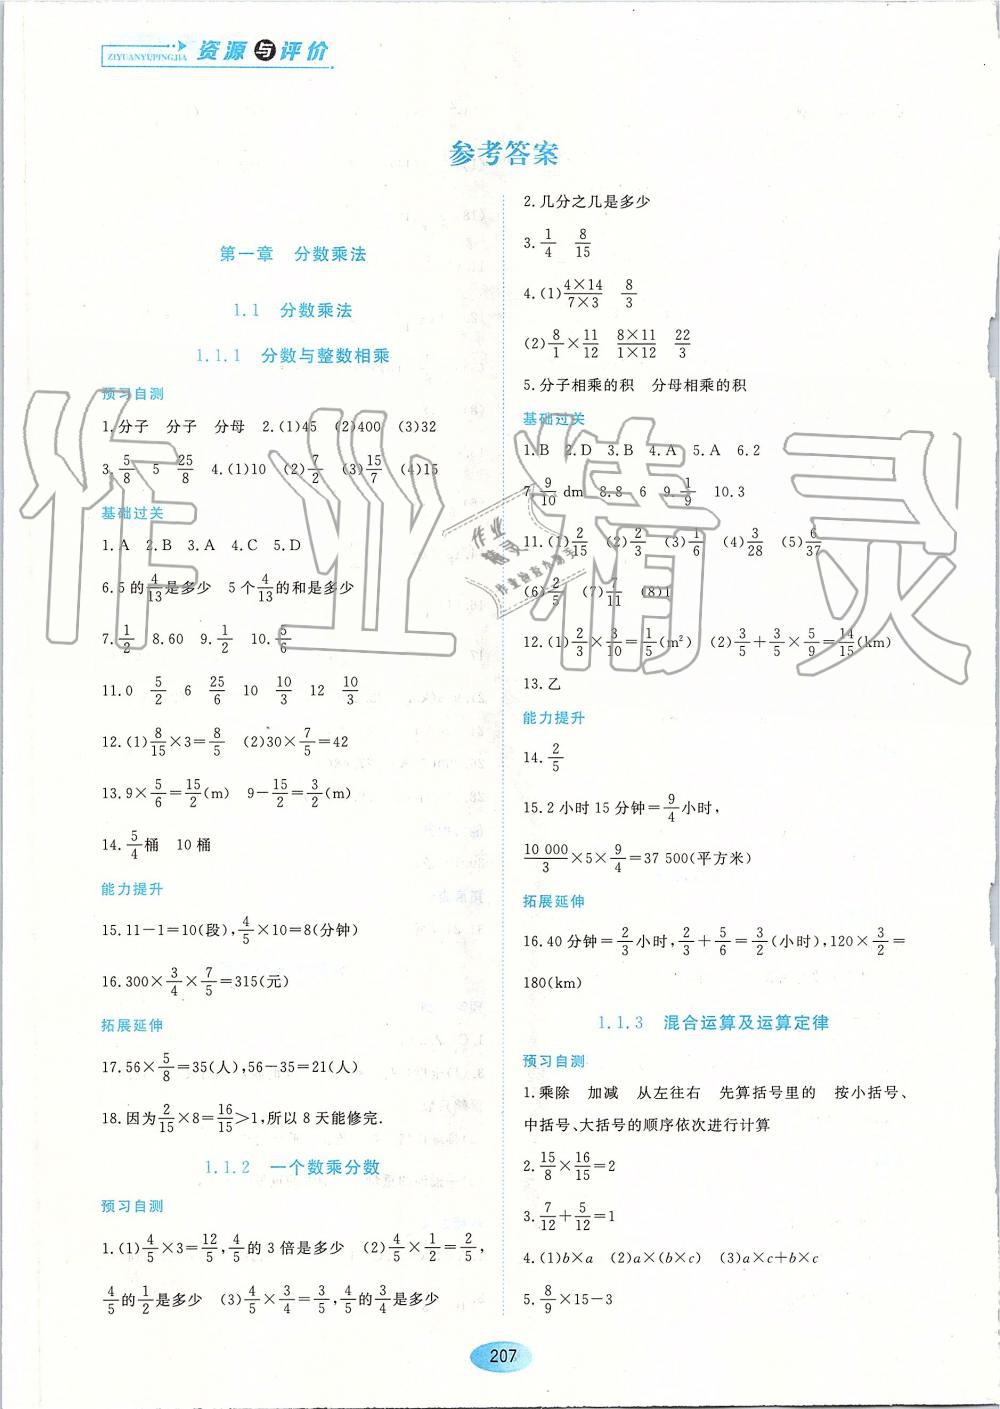 ZIYUANYUPINGJIA 资源与评价
参考答案
第一章 分数乘法
1.1 分数乘法
1.1.1 分数与整数相乘
预习自测
1.分子 分子 分母 2.(1)45 (2)400 (3)32
3.5/8 5 25/8 4.(1)10 (2)7/2 (3)15/7 (4)15
基础过关
1.A 2.B 3.A 4.C 5.D
6.5的4/13是多少 5个4/13的和是多少
7.1/2 8.60 9.1/2 10.5/6
11.0 5/2 6 25/6 10 10/3 12 10/3
12.(1)8/15×3=8/5 (2)30×7/5=42
13.9×5/6=15/2(m) 9-15/2=3/2(m)
14.5/4桶 10桶
能力提升
15.11-1=10(段),4/5×10=8(分钟)
16.300×3/4×7/5=315(元)
拓展延伸
17.56×5/8=35(人),56-35=21(人)
18.因为2/15×8=16/15>1,所以8天能修完.
1.1.2 一个数乘分数
预习自测
1.(1)4/5×3=12/5,4/5的3倍是多少 (2)4/5×1/2=2/5,
4/5的1/2是多少 (3)4/5×3/4=3/5,4/5的3/4是多少
2.几分之几是多少
3.1/4 8/15
4.(1)4×14/7×3 8/3
(2)8/1×11/12 8×11/1×12 22/3
5.分子相乘的积 分母相乘的积
基础过关
1.B 2.D 3.B 4.A 5.A 6.2
7.9/10 dm 8.8 6 9.1/9 10.3
11.(1)2/15 (2)2/3 (3)1/6 (4)3/28 (5)6/37
(6)2/5 (7)7/11 (8)1
12.(1)2/3×3/10=1/5(m²) (2)3/5+3/5×5/9=14/15(km)
13.乙
能力提升
14.2/5
15.2小时15分钟=9/4小时,
10 000/3×5×9/4=37 500(平方米)
拓展延伸
16.40分钟=2/3小时,2/3+5/6=3/2(小时),120×3/2=
180(km)
1.1.3 混合运算及运算定律
预习自测
1.乘除 加减 从左往右 先算括号里的 按小括号、
中括号、大括号的顺序依次进行计算
2.15/8×16/15=2
3.7/12+5/12=1
4.(1)b×a (2)a×(b×c) (3)a×c+b×c
5.8/9×15-3
207
作业精灵
作业精灵